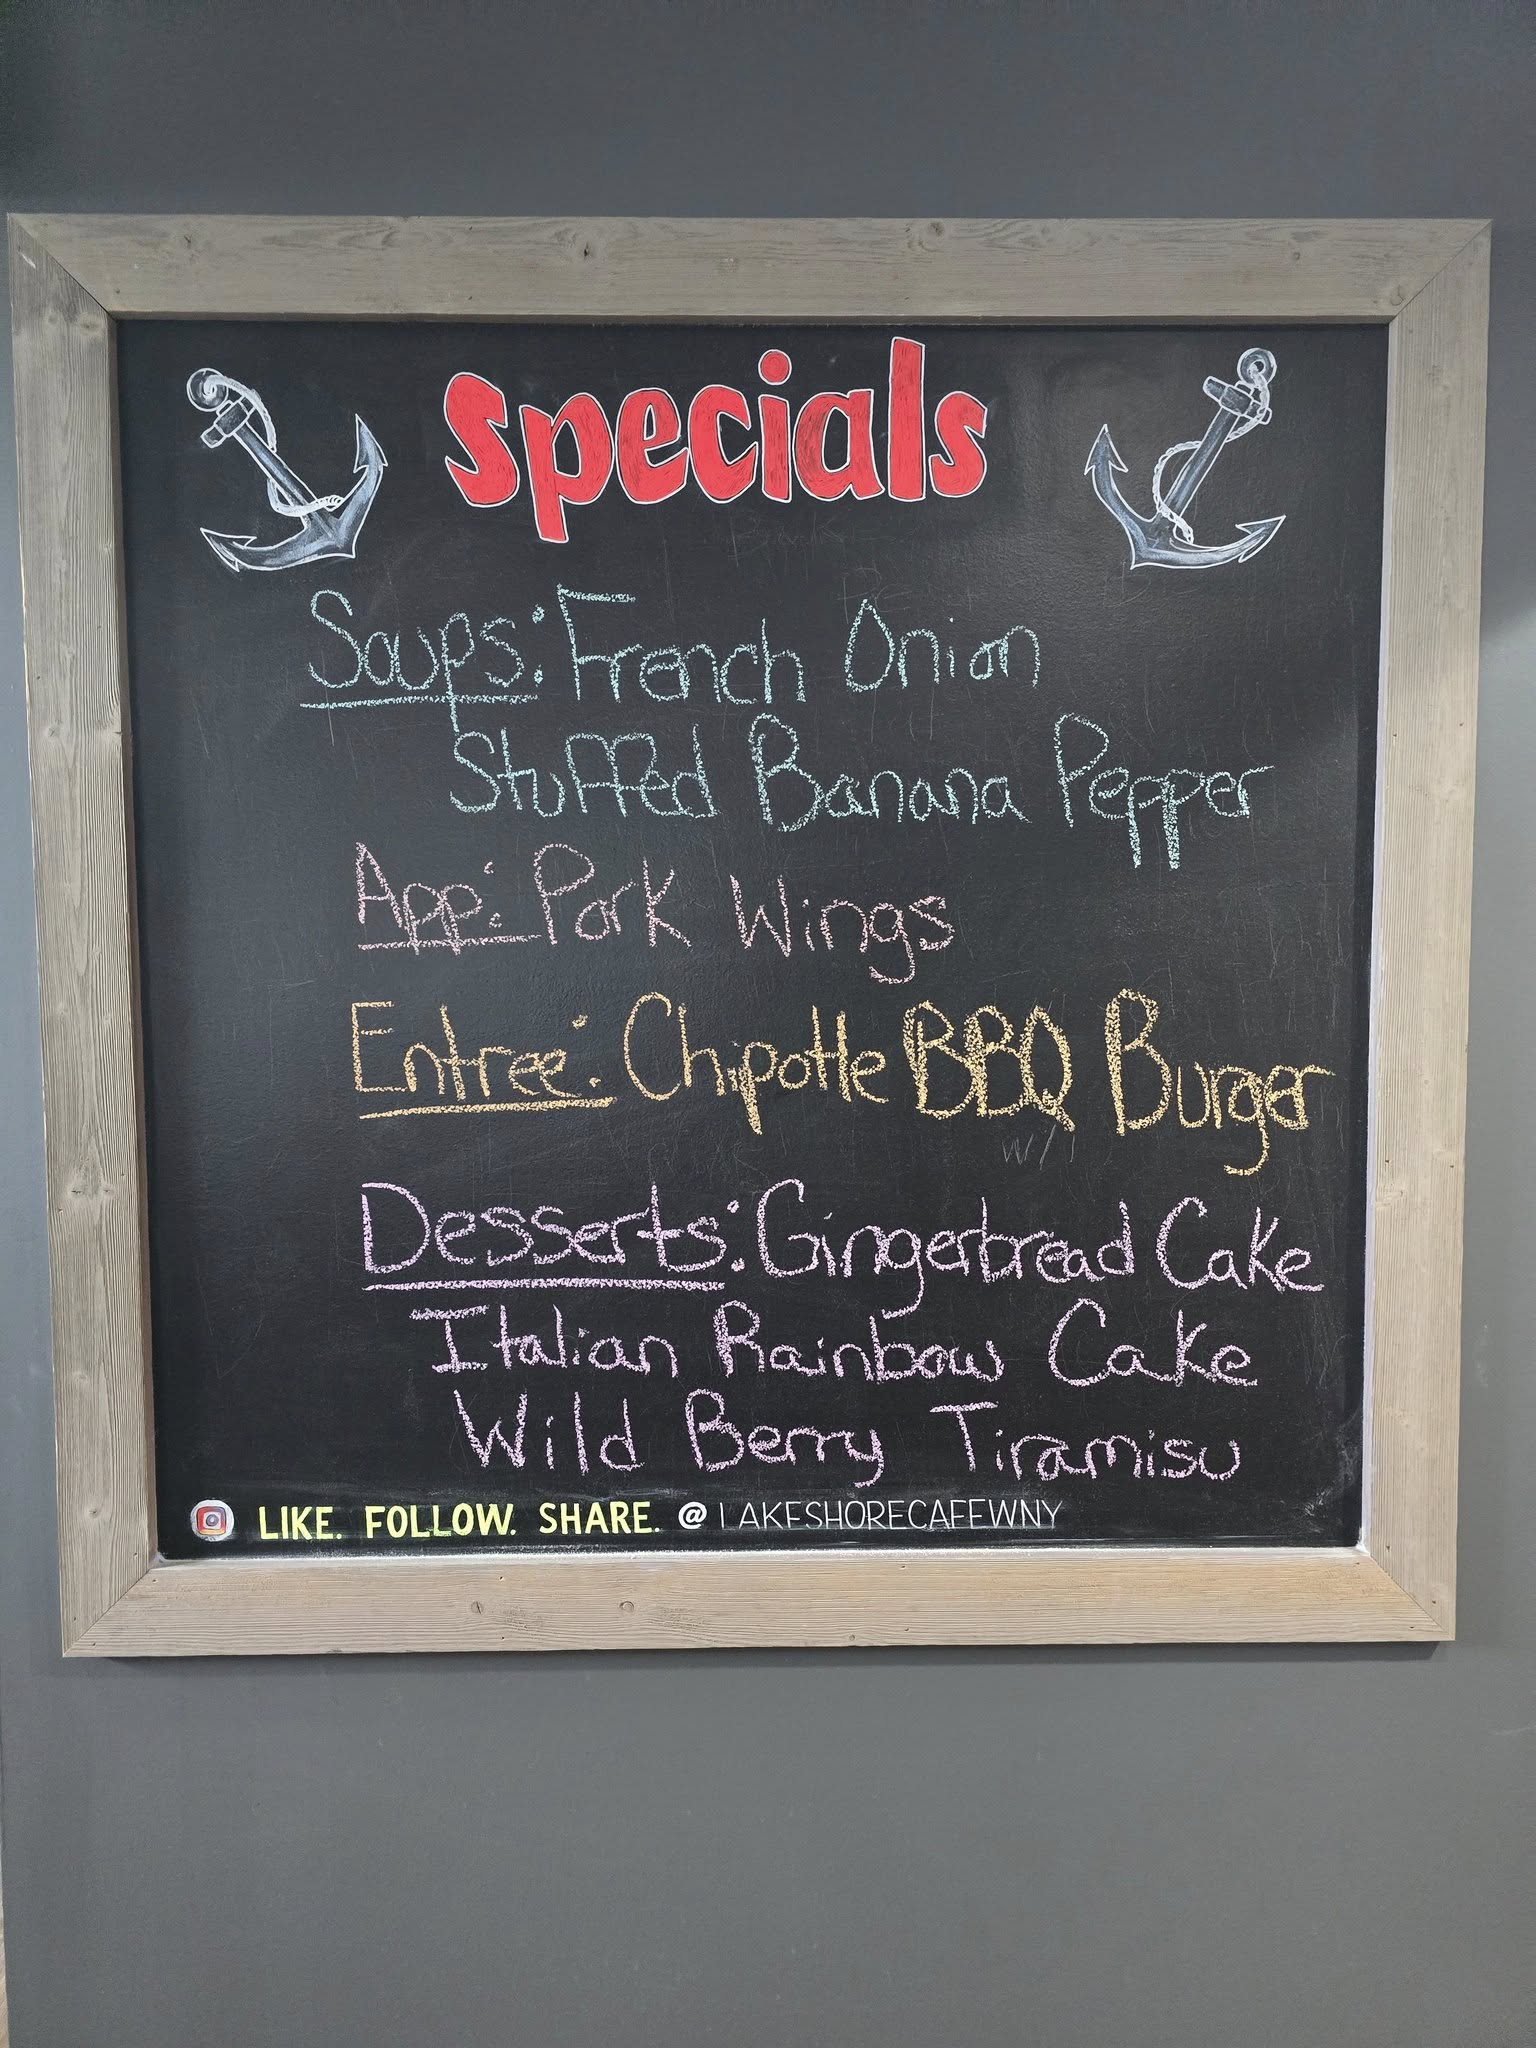 Specials
Soups: French Onion
Stuffed Banana Pepper
App: Pork Wings
Entree: Chipotle BBQ Burger
w/
Desserts: Gingerbread Cake
Italian Rainbow Cake
Wild Berry Tiramisu
LIKE. FOLLOW. SHARE. @LAKESHORECAFEWNY